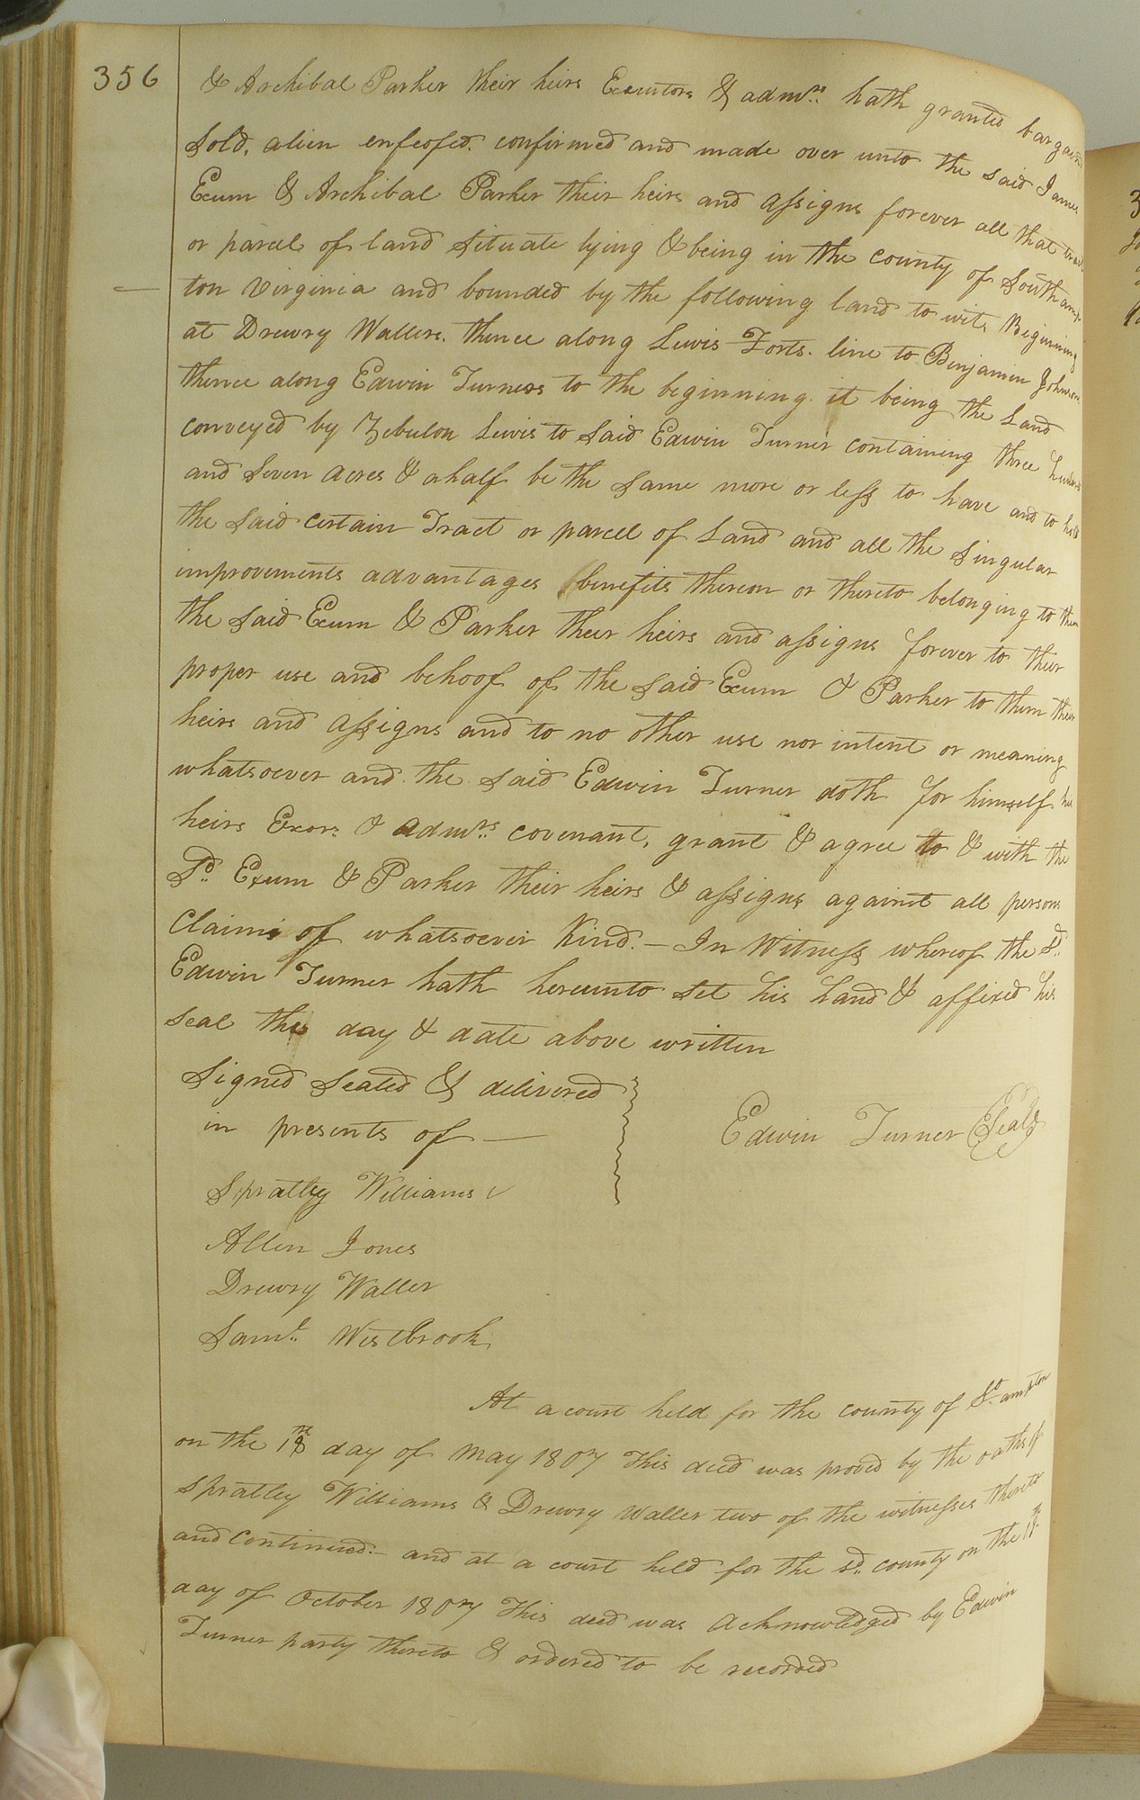 356
& Archibal Parker their heirs Executors & admrs. hath granted bargained
Sold, alien enfeofed. confirmed and made over unto the said James
Exum & Archibal Parker their heirs and assigns forever all that tract
or parcel of land Situate lying & being in the county of Southamp
ton Virginia and bounded by the following land to wit. Beginning
at Drewry Wallers. thence along Lewis Forts. line to Benjamin Johnson
thence along Edwin Turners to the beginning. it being the Land
conveyed by Zebulon Lewis to Said Edwin Turner containing three hundred
and Seven acres & ahalf be the same more or less to have and to hold
the said certain Tract or parcel of Land and all the Singular
improvements advantages benefits thereon or thereto belonging to them
the said Exum & Parker their heirs and assigns forever to their
proper use and behoof of the said Exum & Parker to them their
heirs and assigns and to no other use nor intent or meaning
whatsoever and the said Edwin Turner doth for himself his
heirs Exors. & admrs covenant, grant & agree to & with the
Sd. Exum & Parker their heirs & assigns against all persons
Claims of whatsoever Kind. — In Witness whereof the Sd.
Edwin Turner hath hereunto set his hand & affixed his
seal the day & date above written
Signed Sealed & delivered
in presents of —
Edwin Turner (Seal)
Spratley Williams
Allen Jones
Drewry Waller
Saml. Westbrook
At a court held for the county of So.ampton
on the 18th day of May 1807 This deed was proved by the oaths of
Spratley Williams & Drewry Waller two of the witnesses thereto
and continued:- and at a court held for the sd. county on the
day of October 1807 This deed was acknowledged by Edwin
Turner party thereto & ordered to be recorded